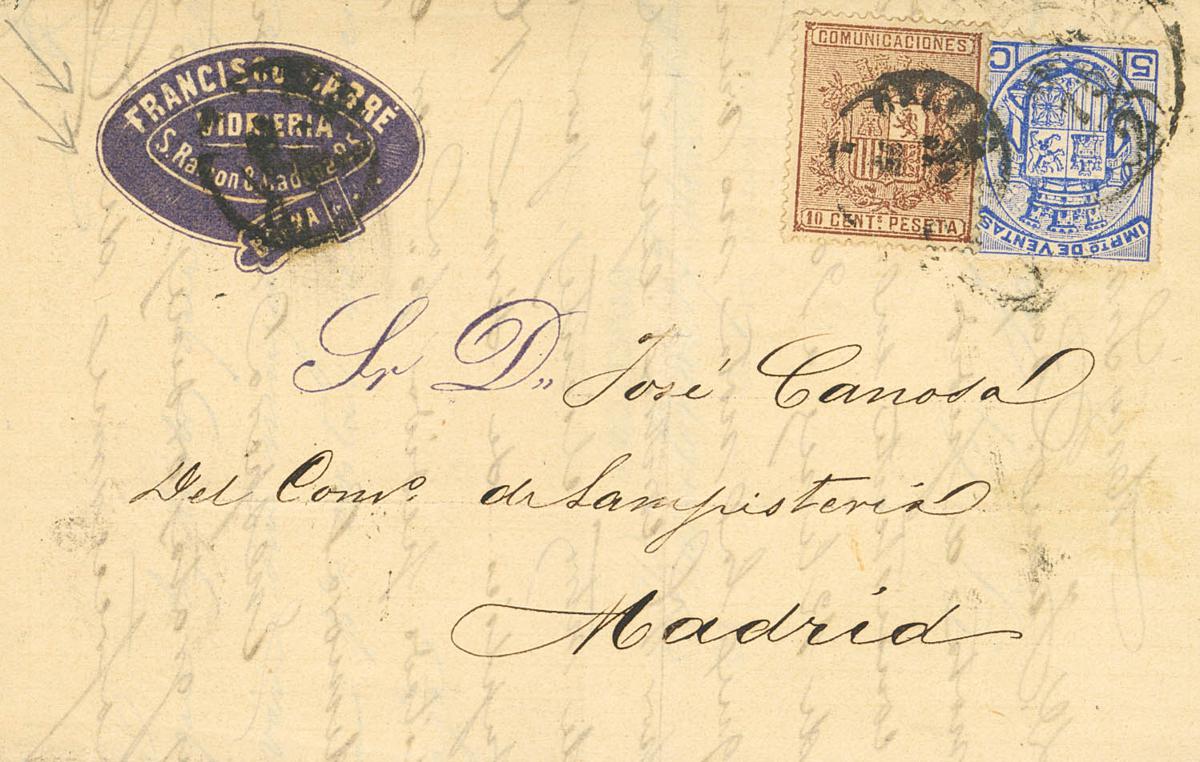 FRANCISCO SABRÉ
VIDRIERIA
S. Ramon 8
COMUNICACIONES
10 CENTS PESETA
5 C
IMPTO DE VENTAS
Sr Dn José Canosa
Del Como. de Lampisteria
Madrid